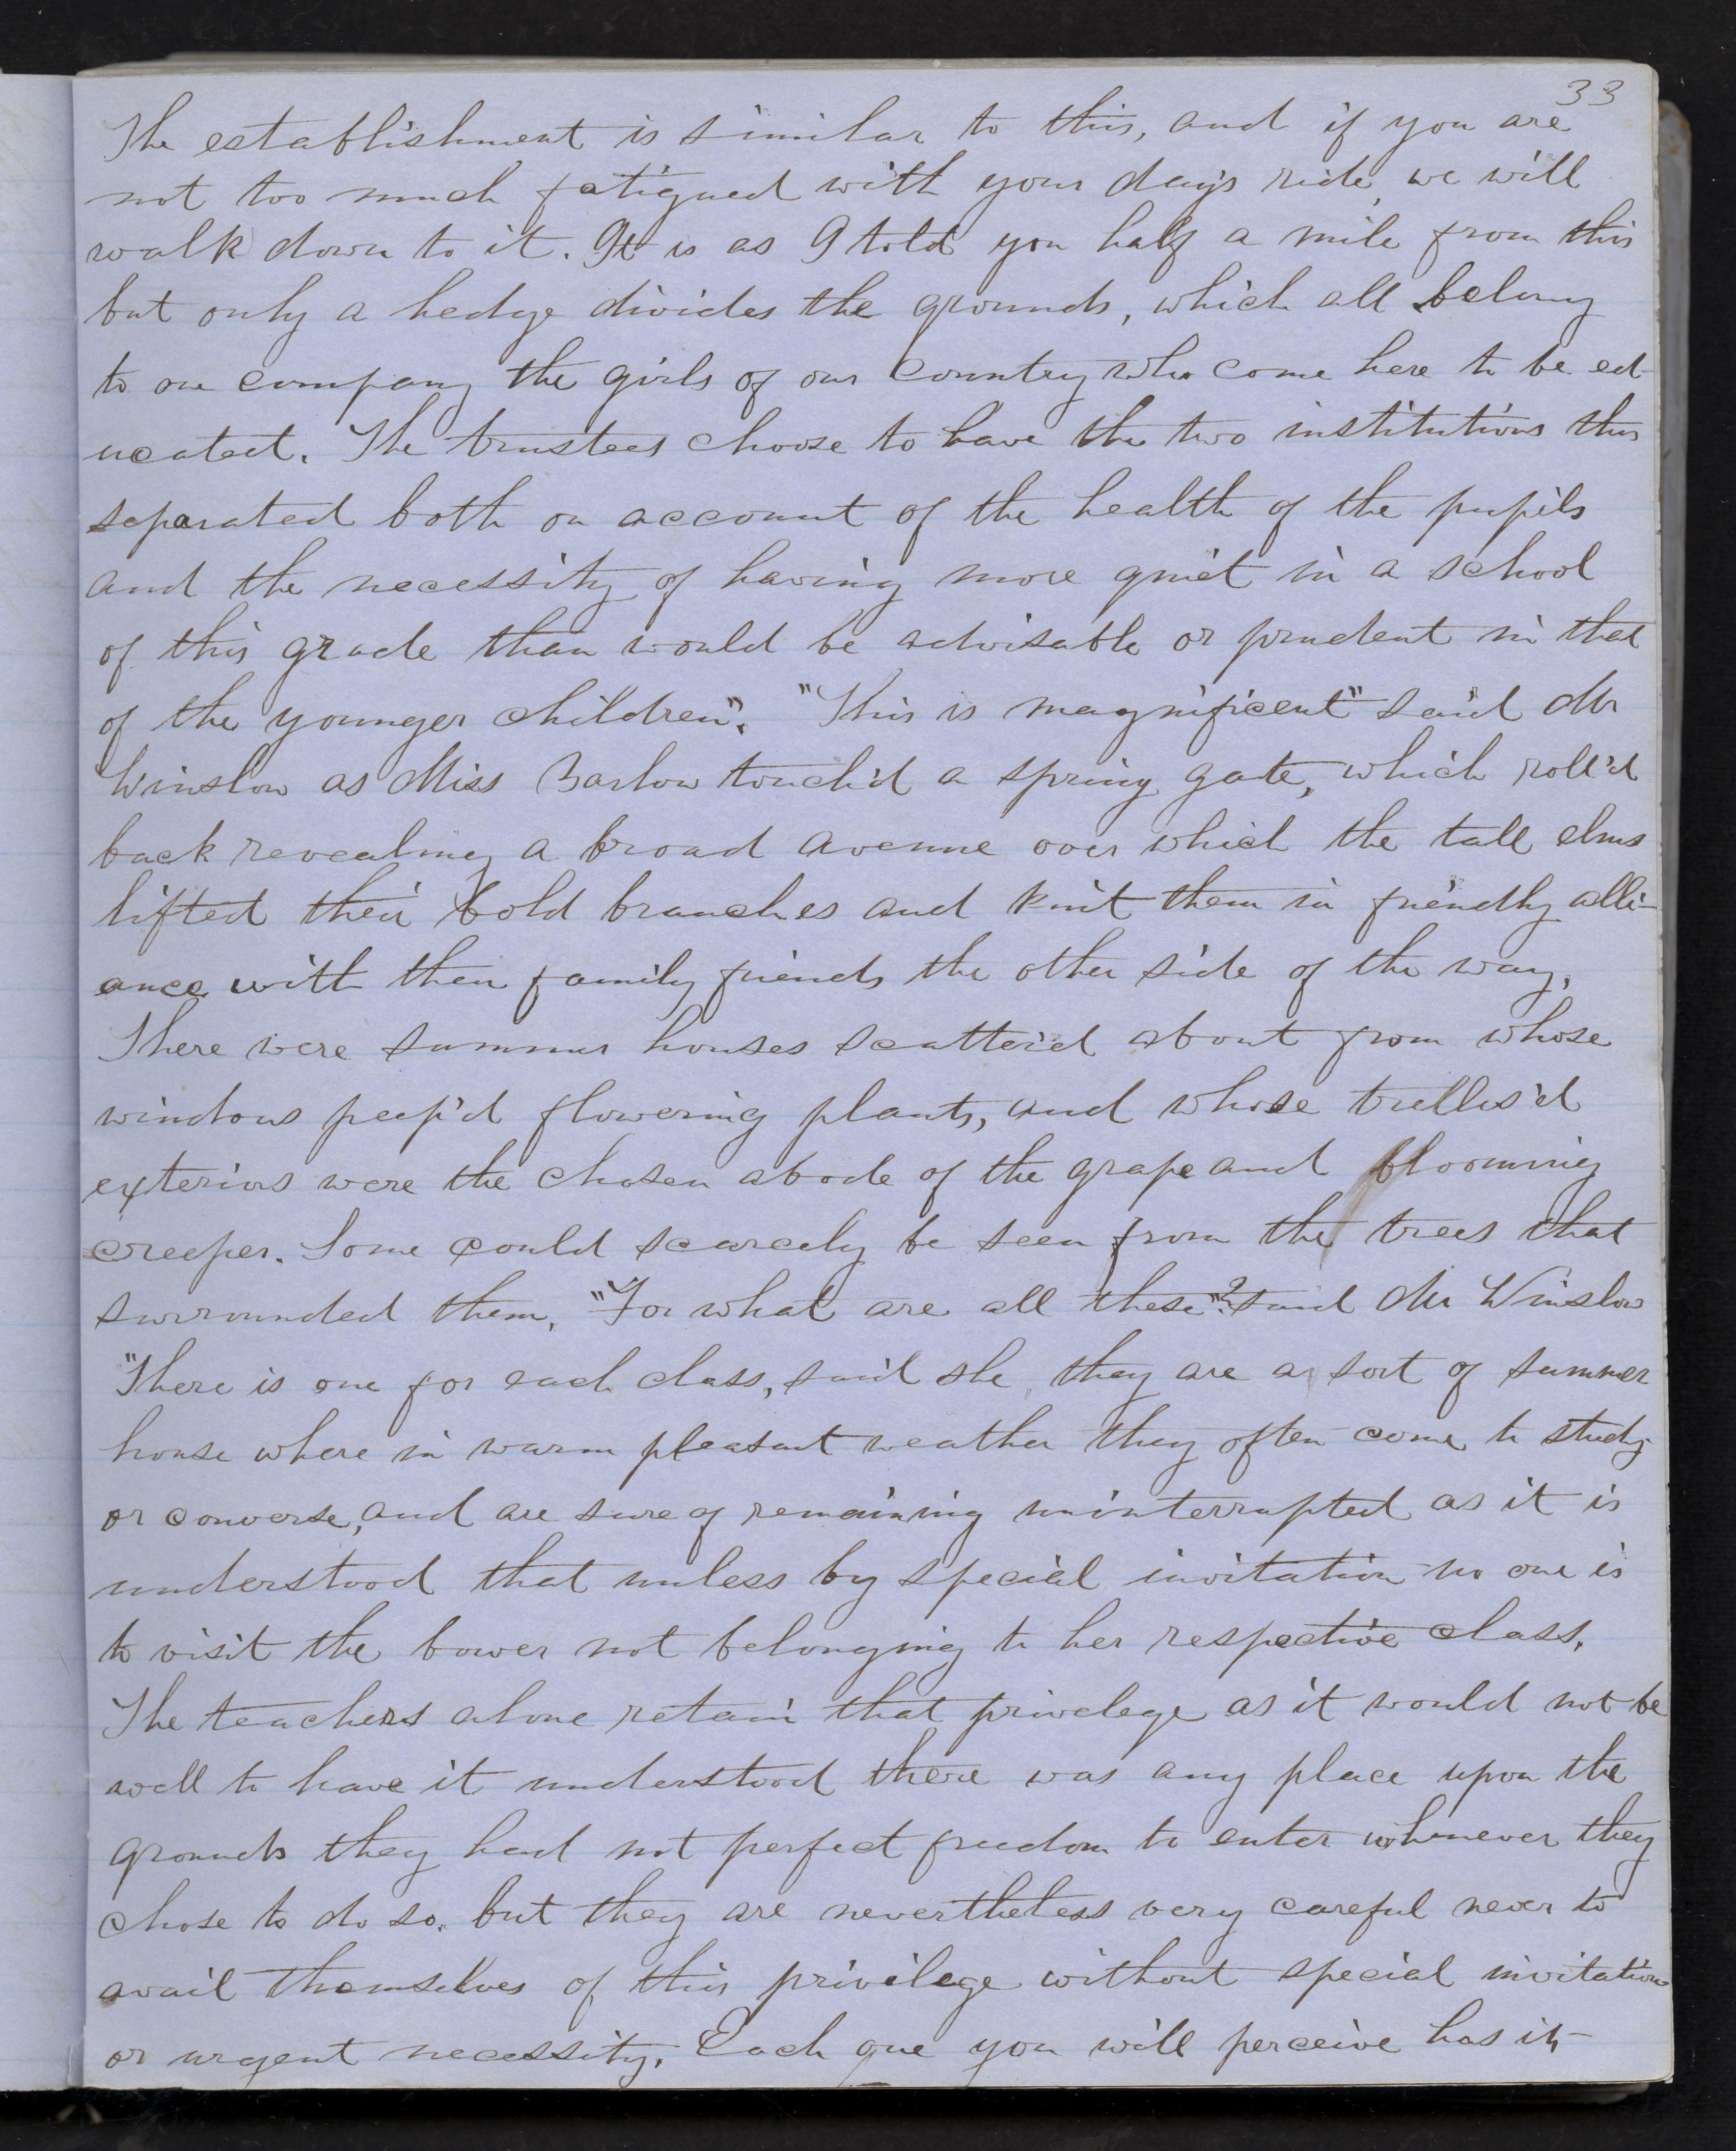 33
The establishment is similar to this, and if you are
not too much fatigued with your day's ride, we will
walk down to it. It is as I told you half a mile from this
but only a hedge divides the grounds, which all belong
to one company the girls of our Country who come here to be ed-
ucated. The trustees choose to have the two institutions thus
separated both on account of the health of the pupils
and the necessity of having more quiet in a school
of this grade than would be advisable or prudent in that
of the younger children". "This is magnificent" said Mr
Winslow as Miss Barlow touch'd a spring gate, which roll'd
back revealing a broad avenue over which the tall elms
lifted their bold branches and knit them in friendly alli-
ance with their family friends the other side of the way.
There were summer houses scatter'd about from whose
windows peep'd flowering plants, and whose trellis'd
exteriors were the chosen abode of the grape and blooming
creeper. Some could scarcely be seen from the trees that
surrounded them. "For what are all these"? said Mr Winslow
"There is one for each class, said she, they are a sort of summer
house where in warm pleasant weather they often come to study
or converse, and are sure of remaining uninterrupted as it is
understood that unless by special invitation no one is
to visit the bower not belonging to her respective class.
The teachers alone retain that privelege as it would not be
well to have it understood there was any place upon the
grounds they had not perfect freedom to enter whenever they
chose to do so. but they are nevertheless very careful never to
avail themselves of this privilege without special invitation
or urgent necessity. Each one you will perceive has its